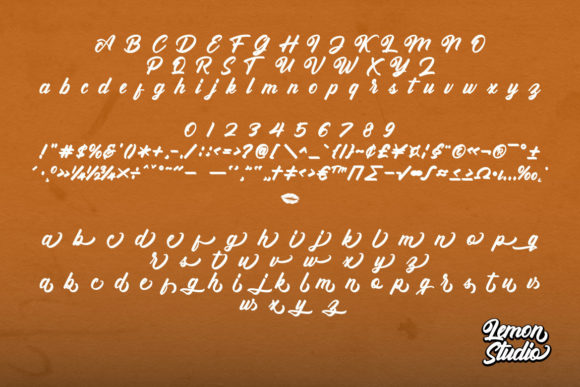 A B C D E F G H I J K L M N O
P Q R S T U V W X Y Z
a b c d e f g h i j k l m n o p q r s t u v w x y z
0 1 2 3 4 5 6 7 8 9
!"#$%&'()*+,-./:;<=>?@[\^_`{|}~¢£¥¤¦§¨©«¬®¯°±
a b c d e f g h i j k l m n o p q
r s t u v w x y z
a b c d e f g h i j k l m n o p q r s t u v
w x y z
Lemon
Studio